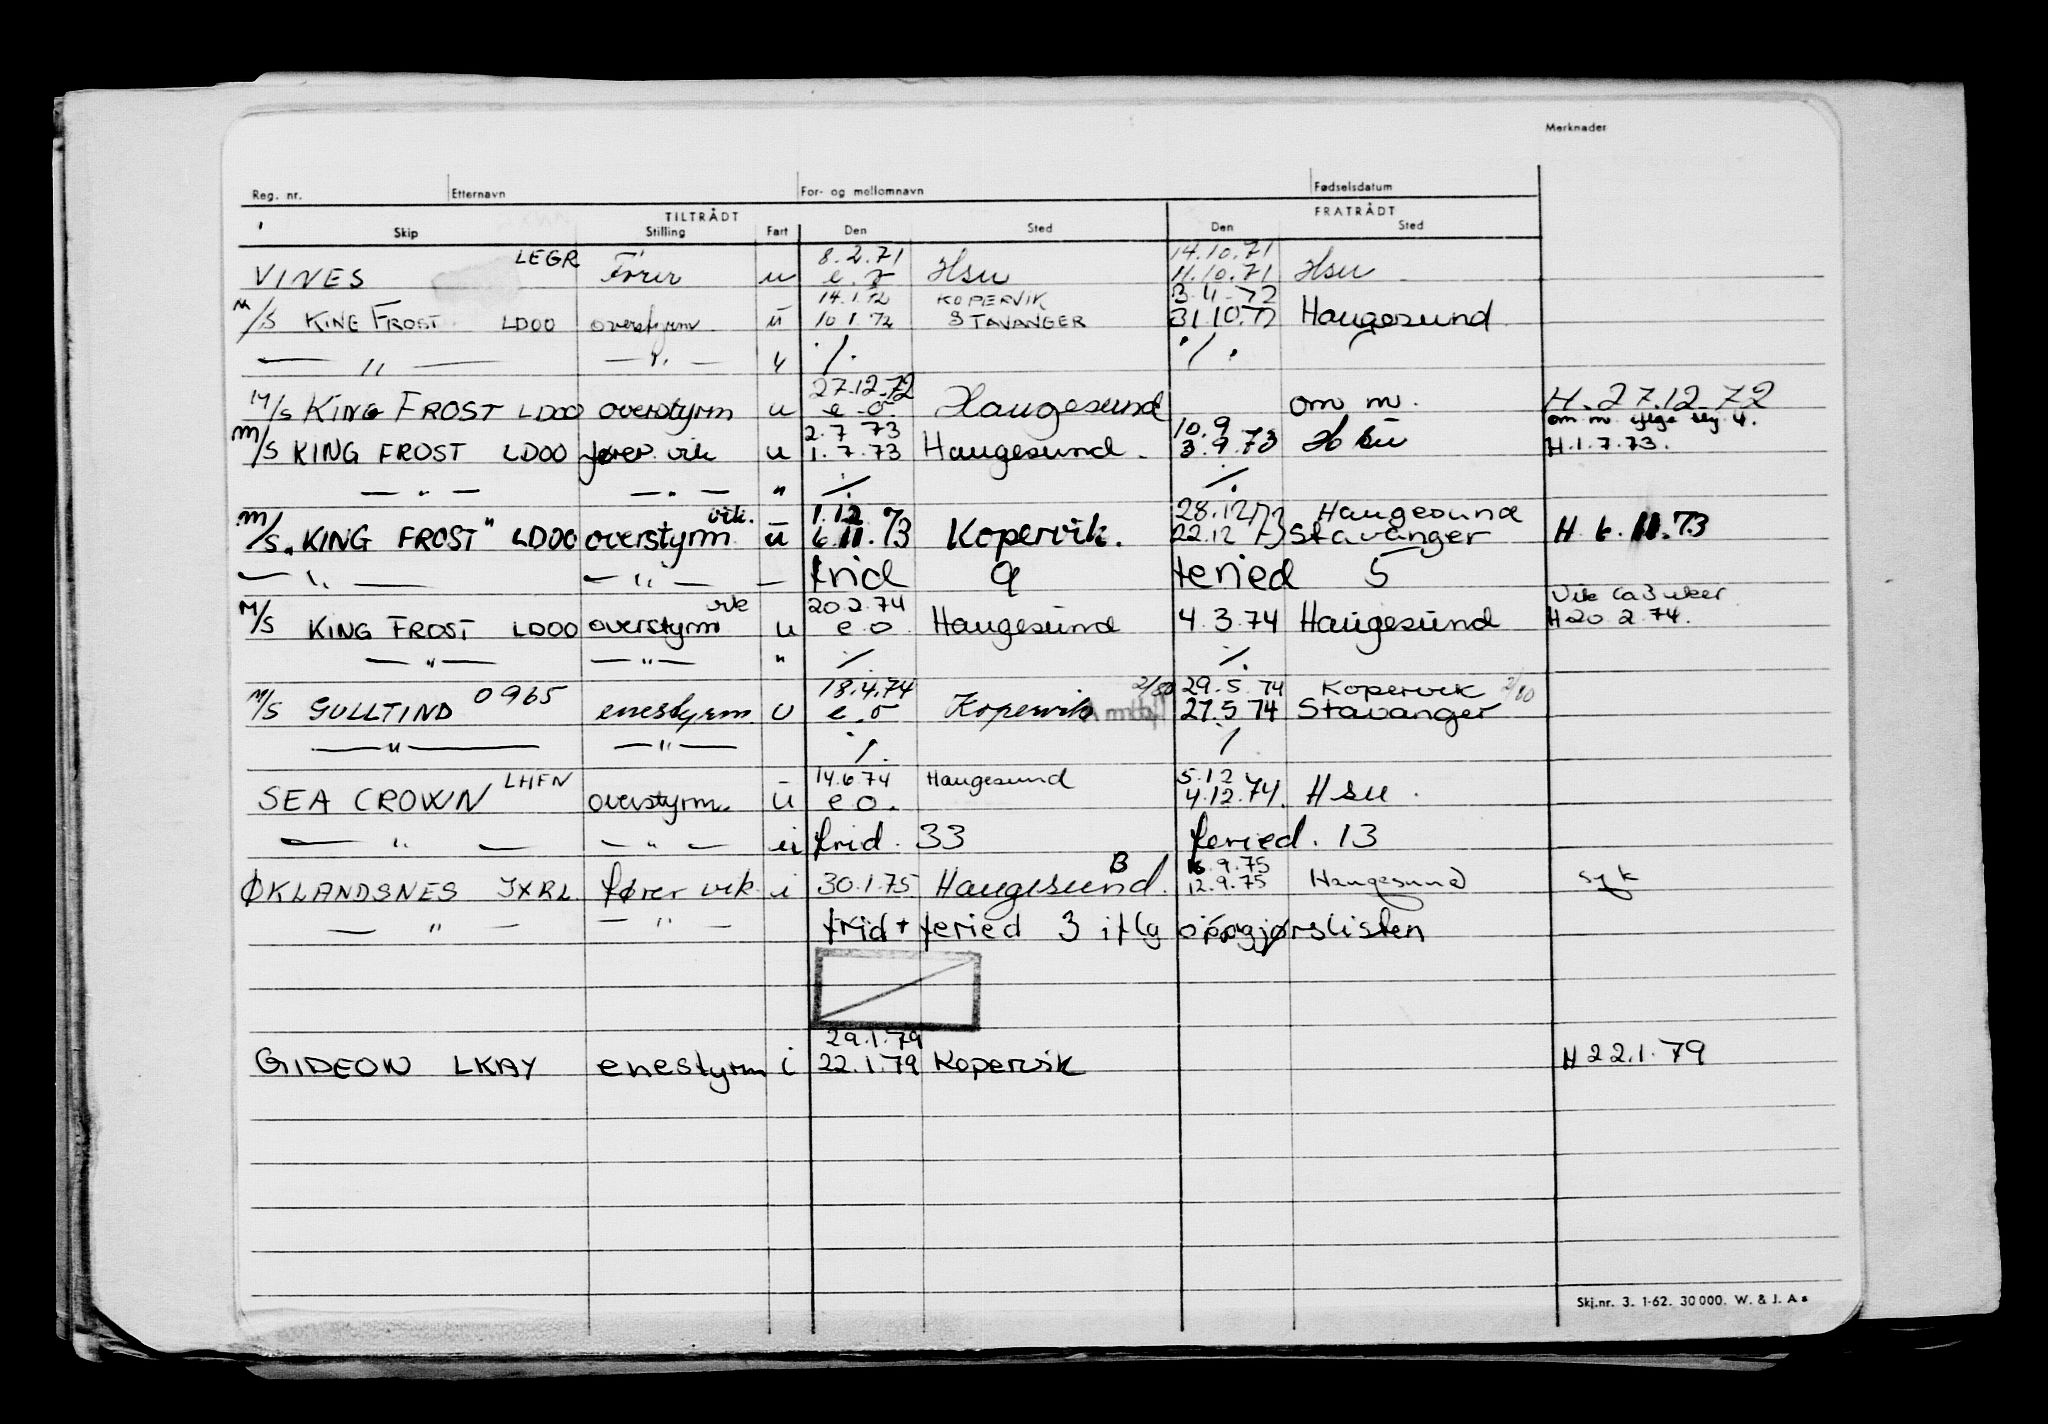 Merknader
Reg. nr. Etternavn For- og mellomnavn Fødselsdatum
TILTRÅDT FRATRÅDT
Skip Stilling Fart Den Sted Den Sted
8.2.71 14.10.71
VINES LEGR Fører u e.o. Hsu 11.10.71 Hsu
14.1.72 KOPERVIK 3.11.72
M/S KING FROST LDOO overstyrm u 10.1.72 STAVANGER 31.10.72 Haugesund
— " — — " — u ./. ./.
27.12.72
M/S KING FROST LDOO overstyrm u e.o. Haugesund om m. H. 27.12.72
2.7.73 10.9 om m.
M/S KING FROST LDOO fører vik u 1.7.73 Haugesund. 3.9.73 H su H.1.7.73.
— " — — " — " ./. ./.
vik. 1.12 28.12.73 Haugesund
M/S "KING FROST" LDOO overstyrm u 6.11.73 Kopervik. 22.12.73 Stavanger H. 6.11.73
— " — — " — — frid 9 feried 5
vik 20.2.74 Vik ca 3 uker
M/S KING FROST LDOO overstyrm u e.o. Haugesund 4.3.74 Haugesund H 20.2.74.
— " — — " — " ./. ./.
18.4.74 2/80 29.5.74 Kopervik 2/80
M/S GULLTIND 0965 enestyrm u e.o. Kopervik 27.5.74 Stavanger
— " — — " — ./. ./.
LHFN 14.6.74 Haugesund 5.12
SEA CROWN overstyrm. u e.o. 4.12.74. H su.
— " — — " — u frid. 33 feried. 13
B 16.9.75
ØKLANDSNES JXRL fører vik. i 30.1.75 Haugesund. 12.9.75 Haugesund syk
— " — — " — frid + feried 3 iflg oppgjørslisten
29.1.79
GIDEON LKAY enestyrm i 22.1.79 Kopervik H 22.1.79
Skj.nr. 3. 1-62. 30 000. W. & J. A s